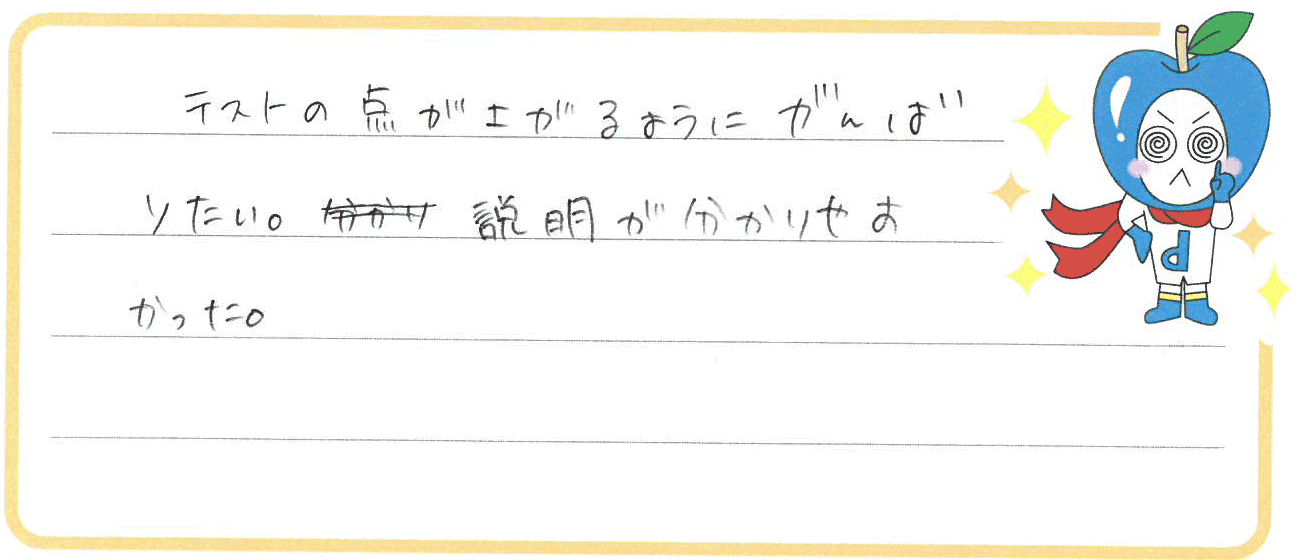 テストの点が上がるようにがんば
りたい。説明が分かりやす
かった。
d